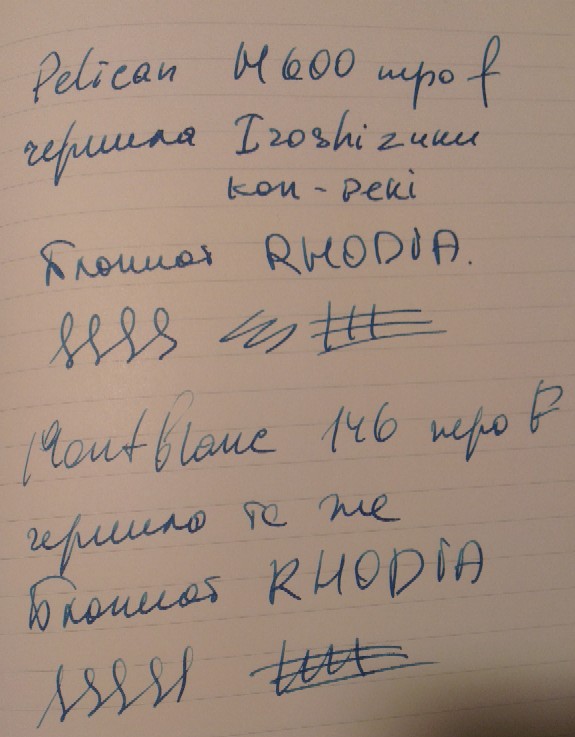 Pelican M600 перо f
чернила Iroshizuku
kon-peki
Блокнот RHODIA.
MontBlanc 146 перо F
чернила те же
Блокнот RHODIA